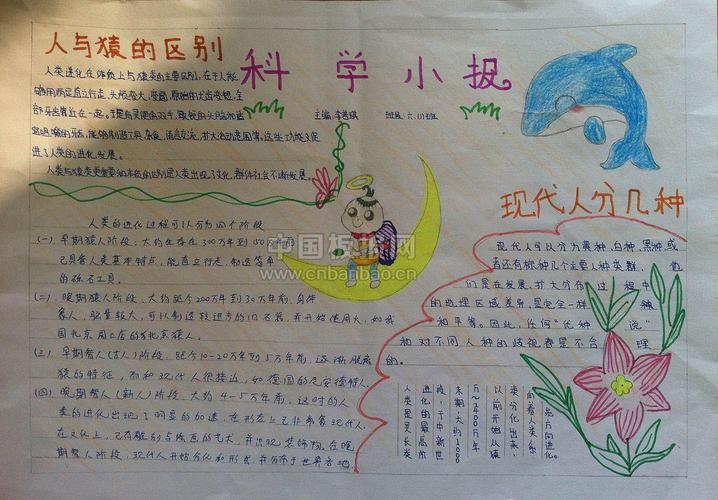 人与猿的区别
科学小报
主编:李
班级:六.(1)班
人类进化在体质上与猿类的主要区别,在于人能
够用两足直立行走,
进了人类的进化发展。
人类的进化过程可以分为四个阶段
(一)早期猿人阶段:大约生存在300万年到150万年前
已具备人类基本特点,能直立行走,制造简单
的砾石工具。
(二)晚期猿人阶段:大约距今200万年到30万年前,身体
像人,脑量较大,可以制造较进步的旧石器,并开始使用火,如我
国北京周口店的北京猿人。
(三)早期智人(古人)阶段:距今10-20万年到5万年前,逐渐脱离
猿的特征,而和现代人很接近,如德国的尼安德特人。
(四)晚期智人(新人)阶段:大约4-5万年前,这时的人
类的进化出现了明显的加速,在形态上已非常像现代人,
在文化上,已有雕刻与绘画的艺术,并出现装饰物,在晚
期智人阶段,现代人开始分化和形成,并分布于世界各地
中国板报网
www.cnbanbao.cn
现代人分几种
现代人可以分为黄种、白种、黑种或
者还有棕种几个主要人种类群,他
们是在发展、扩大分布过程中
的地理区域差异,是完全一样
和平等。因此,任何“优种说”
和对不同人种的歧视都是不合理
的。
人类是灵长类
进化的最高阶
段,于中新世
末期:大约1000
万~400万年
以前开始从猿
类分化出来,
向着人类的
方向进化。